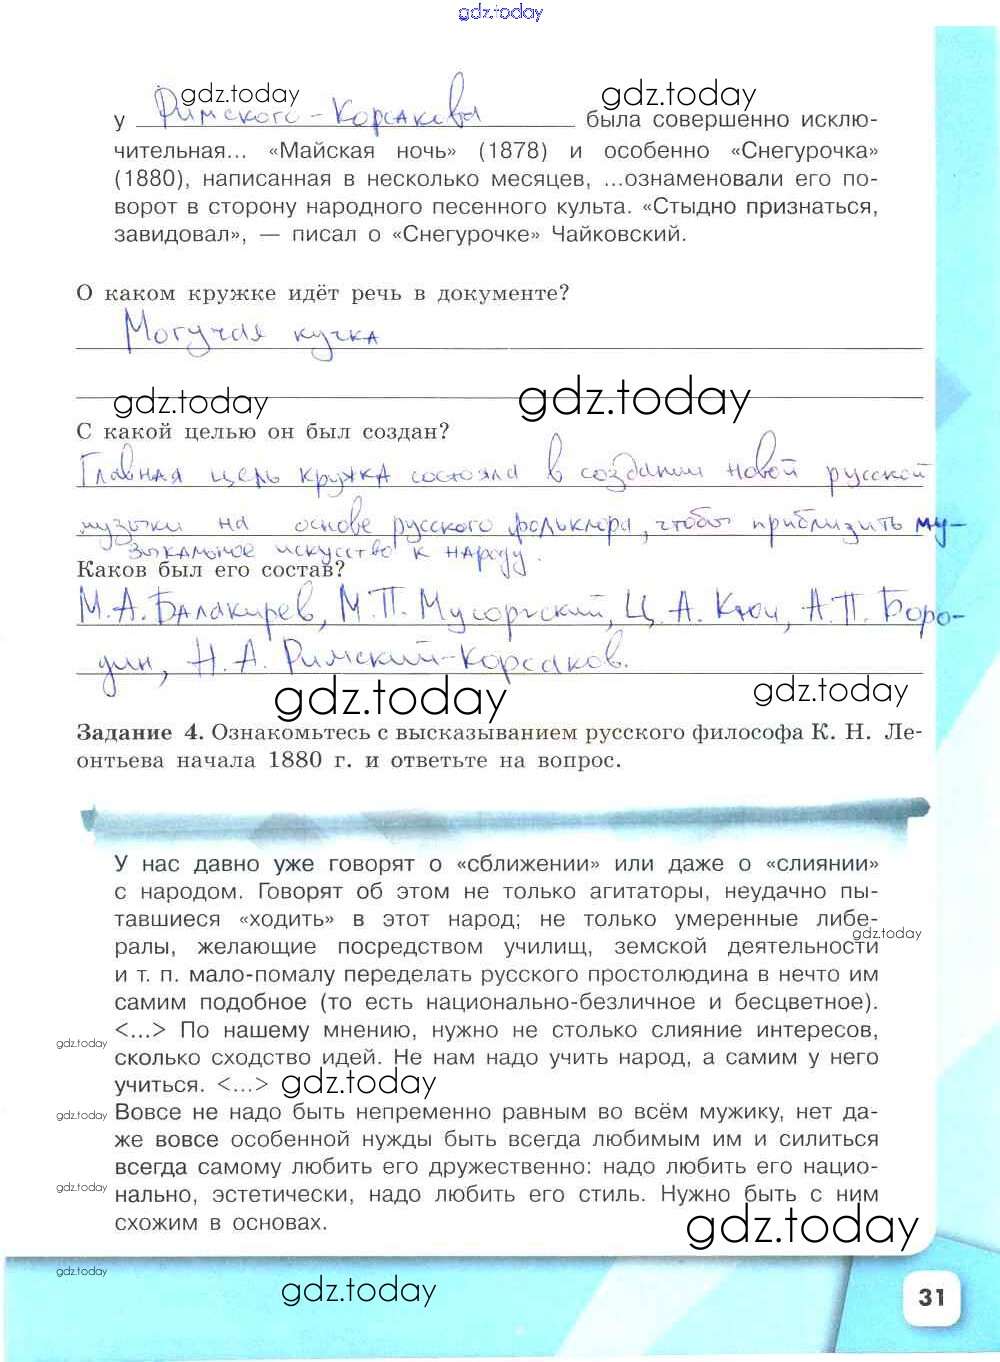 gdz.today
gdz.today gdz.today
у Римского-Корсакова была совершенно исклю-
чительная... «Майская ночь» (1878) и особенно «Снегурочка»
(1880), написанная в несколько месяцев, ...ознаменовали его по-
ворот в сторону народного песенного культа. «Стыдно признаться,
завидовал», — писал о «Снегурочке» Чайковский.
О каком кружке идёт речь в документе?
Могучая кучка
gdz.today gdz.today
С какой целью он был создан?
Главная цель кружка состояла в создании новой русской
музыки на основе русского фольклора, чтобы приблизить му-
зыкальное искусство к народу.
Каков был его состав?
М.А.Балакирев, М.П.Мусоргский, Ц.А.Кюи, А.П.Боро-
дин, Н.А.Римский-Корсаков.
gdz.today gdz.today
Задание 4. Ознакомьтесь с высказыванием русского философа К. Н. Ле-
онтьева начала 1880 г. и ответьте на вопрос.
У нас давно уже говорят о «сближении» или даже о «слиянии»
с народом. Говорят об этом не только агитаторы, неудачно пы-
тавшиеся «ходить» в этот народ; не только умеренные либе-
gdz.today
ралы, желающие посредством училищ, земской деятельности
и т. п. мало-помалу переделать русского простолюдина в нечто им
самим подобное (то есть национально-безличное и бесцветное).
<...> По нашему мнению, нужно не столько слияние интересов,
gdz.today
сколько сходство идей. Не нам надо учить народ, а самим у него
учиться. <...> gdz.today
Вовсе не надо быть непременно равным во всём мужику, нет да-
gdz.today
же вовсе особенной нужды быть всегда любимым им и силиться
всегда самому любить его дружественно: надо любить его нацио-
gdz.today
нально, эстетически, надо любить его стиль. Нужно быть с ним
схожим в основах. gdz.today
gdz.today
gdz.today
31